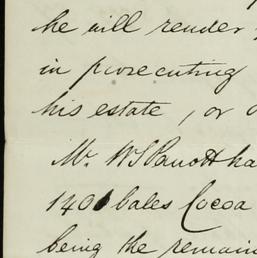 he will render
in prosecuting
his estate, or
Mr. W S Parrott ha
1400 bales Cocoa
being the remain